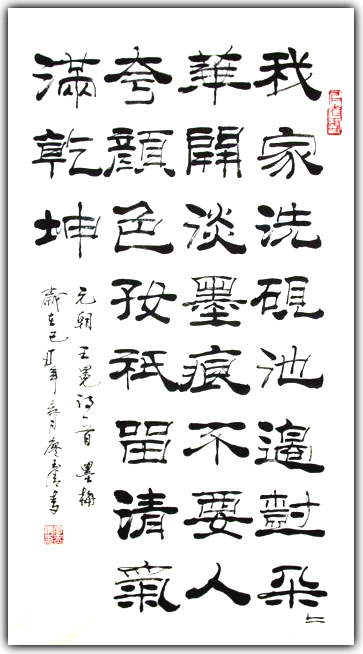 我家洗硯池邊尌朵〻
華開淡墨痕不要人
夸顏色好祇留清氣
滿乾坤
元朝王冕詩一首 墨梅
歲在己丑年月廖書